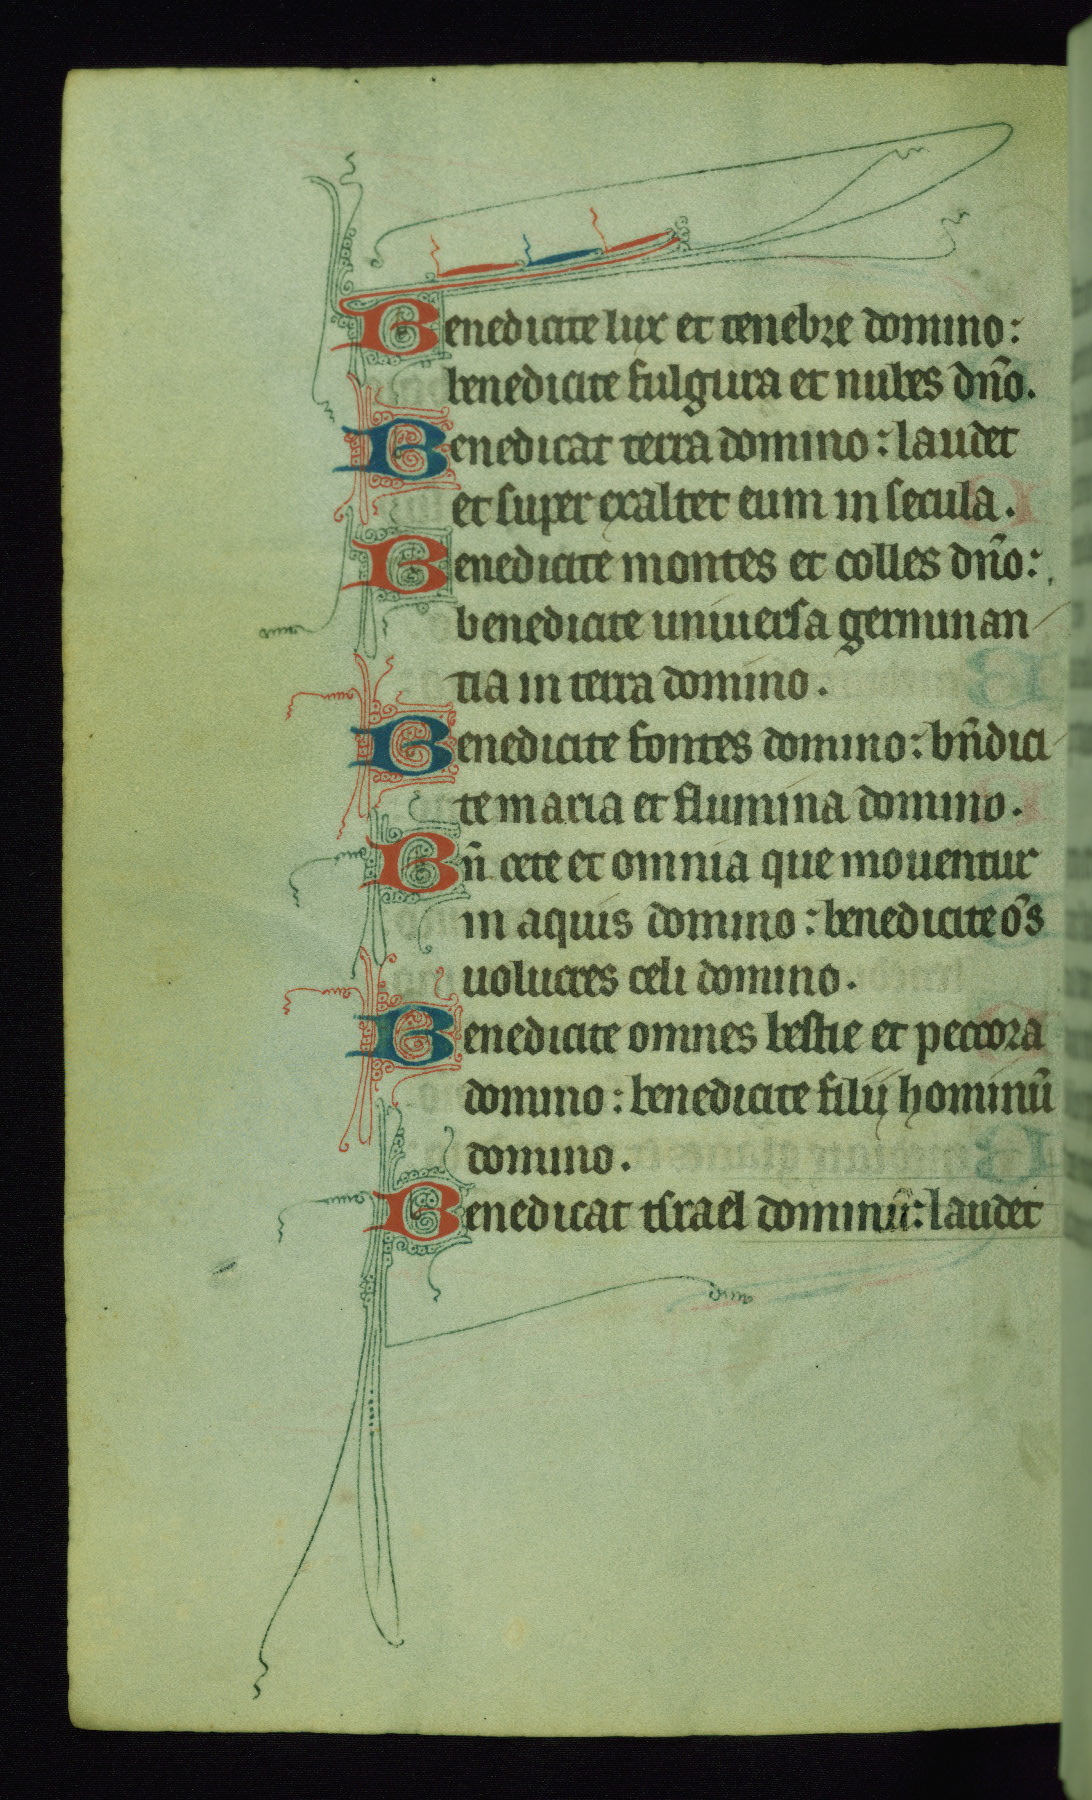 Benedicite lux et tenebre domino:
benedicite fulgura et nubes dño.
Benedicat terra domino: laudet
et super exaltet eum in secula.
Benedicite montes et colles dño:
benedicite uniuersa germinan
tia in terra domino.
Benedicite fontes domino: bñdici
te maria et flumina domino.
Bñ cete et omnia que mouentur
in aquis domino: benedicite õs
uolucres celi domino.
Benedicite omnes bestie et peccora
domino: benedicite filij hominũ
domino.
Benedicat israel dominũ: laudet